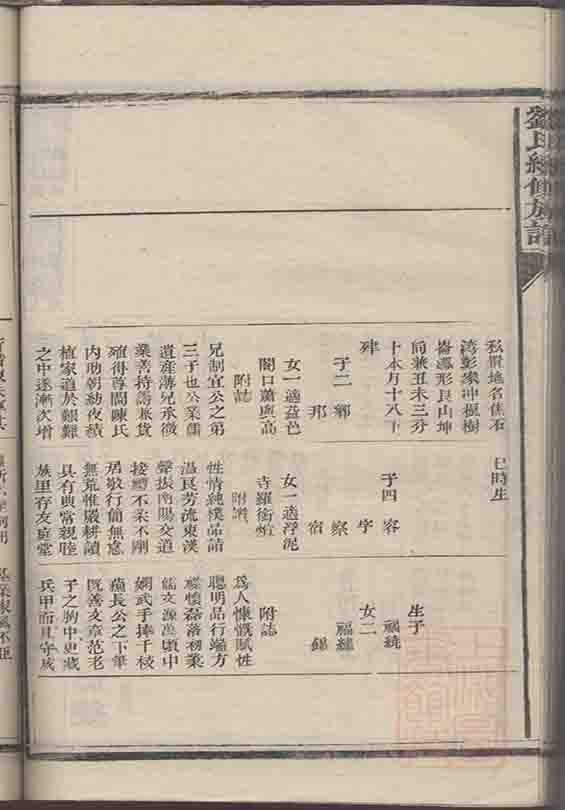 劉氏續修族譜
私買地名焦石
湾彭家冲楓樹
崙鳳形艮山坤
向兼丑未三分
十本月十八丁
碑
子二 鄉
邦
女一適益邑
閣口蕭興高
附誌
兄制宜公之弟
三子也公業儒
遺產溥兄承微
業善持籌兼貨
確得尊閫陳氏
內助朝勤夜積
植家道於艱難
之中逐漸次增
巳時生
子四 容
字
察
宿
女一適浮泥
寺羅衝
附譔
性情純樸品詣
温良芳流東漢
聲振南陽交道
接禮不柔不剛
居敬行簡無怠
無荒惟嚴耕讀
具有典常親睦
族里存友庭堂
生子
福統
女二
福繩
錦
附誌
為人慷慨賦性
聰明品行端方
襟懷磊落初業
儒文源萬頃中
嫻武手捧千枝
猿長公之下筆
既善文章范老
子之胸中更藏
兵甲而且守成